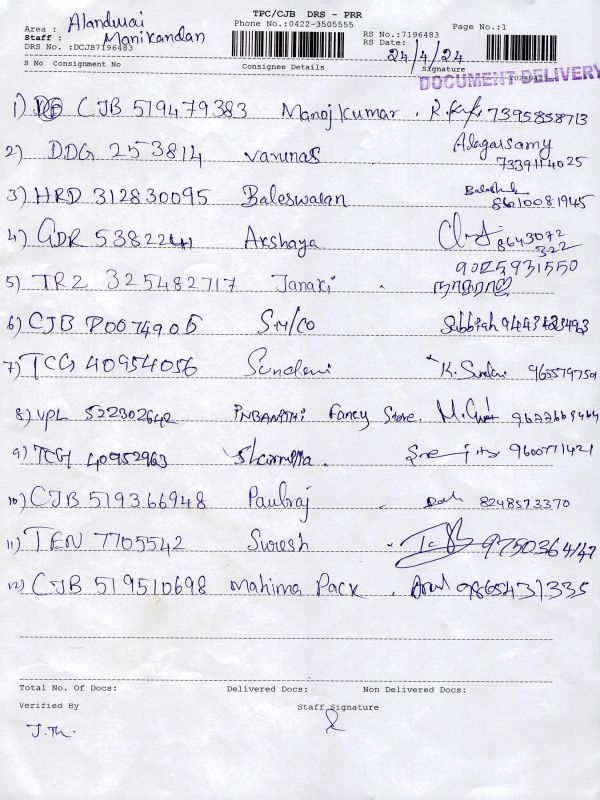 TPC/CJB DRS - PRR
Area : Alandurai Phone No.:0422-3505555 Page No.:1
Staff : Manikandan RS No.:7196483
DRS No. :DCJB7196483 RS Date: 24/4/24
S No Consignment No Consignee Details Signature
DOCUMENT DELIVERY
1) CJB 519479383 Manoj kumar . 7395858713
2) DDG 253814 Varunas . Alagarsamy 7339114025
3) HRD 312830095 Baleswalan 8610081945
4) GDR 5382241 Akshaya 8643072322
5) TRZ 325482717 Janaki . 9025931550 நாகராஜ்
6) CJB P0074905 Sri/co Subbiah
7) TCG 40954056 Sundari K. Sundari
8) VPL 522302642 Fancy Store.
9) TCG 40952963 Sharmila. 9600771421
10) CJB 519366948 Paulraj . 8248573370
11) TEN 7705542 Suresh .
12) CJB 519510698 Mahima Pack . Arul 9865431335
Total No. Of Docs: Delivered Docs: Non Delivered Docs:
Verified By Staff Signature